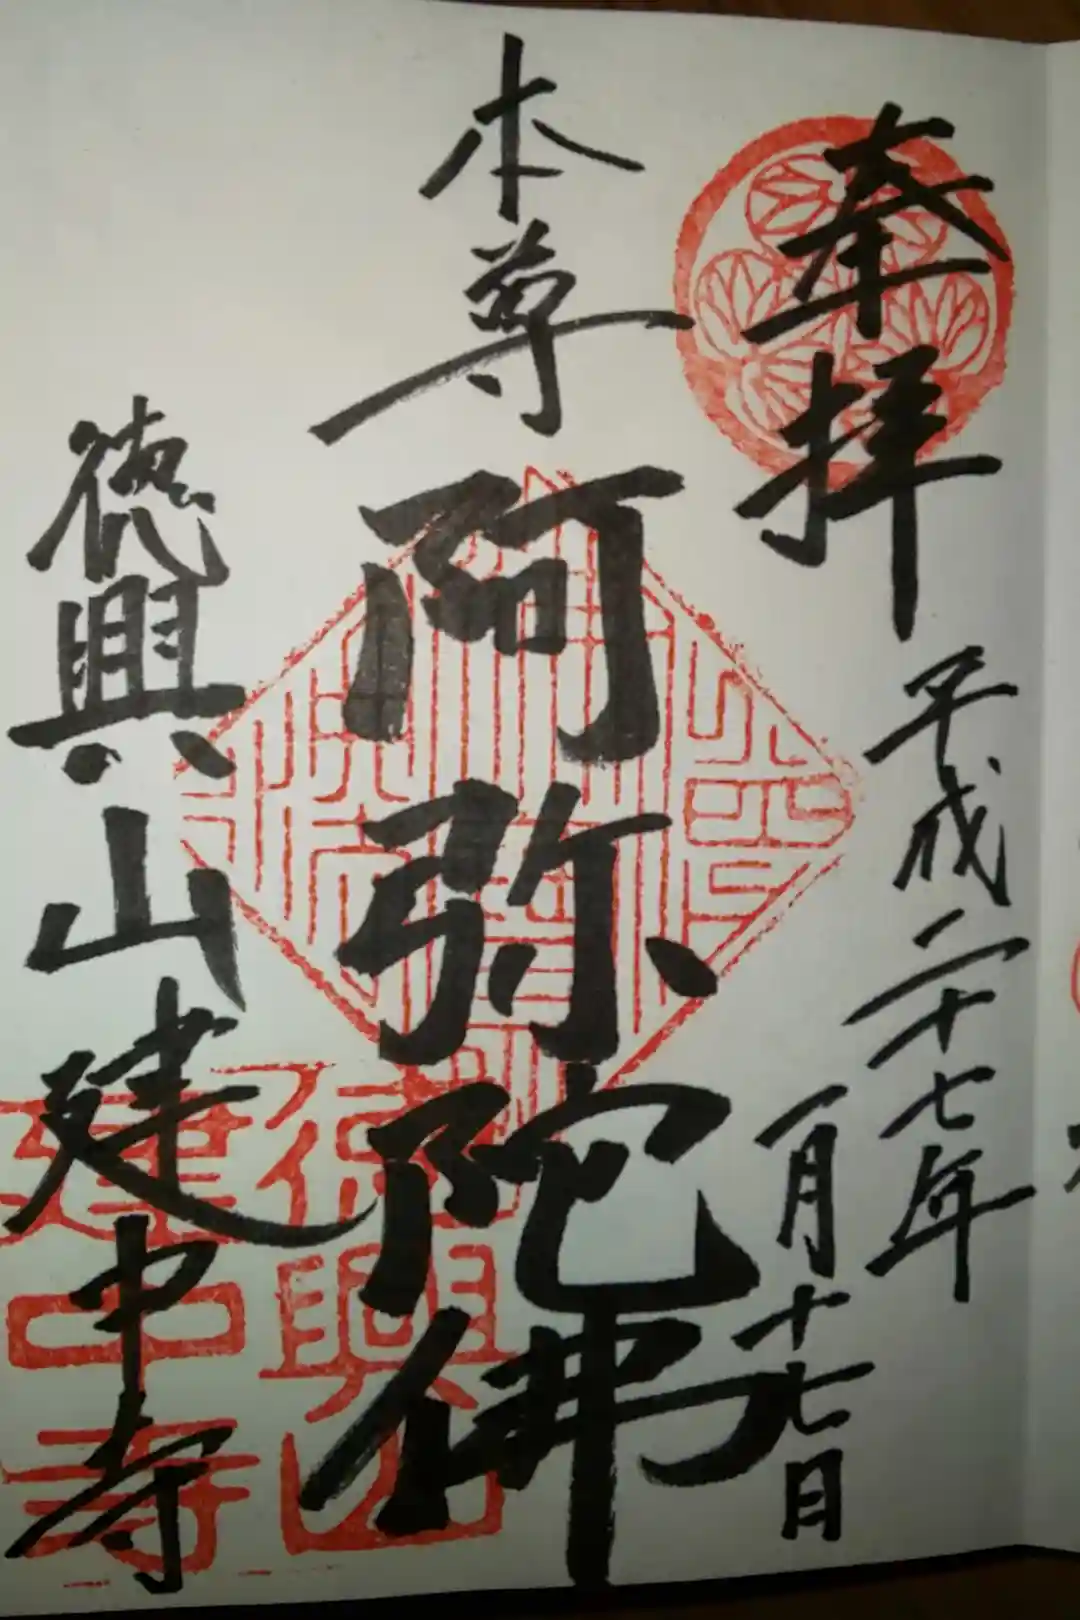 奉拝
平成二十七年
一月十七日
本尊
阿弥陀佛
徳興山建中寺
徳興山
建中寺